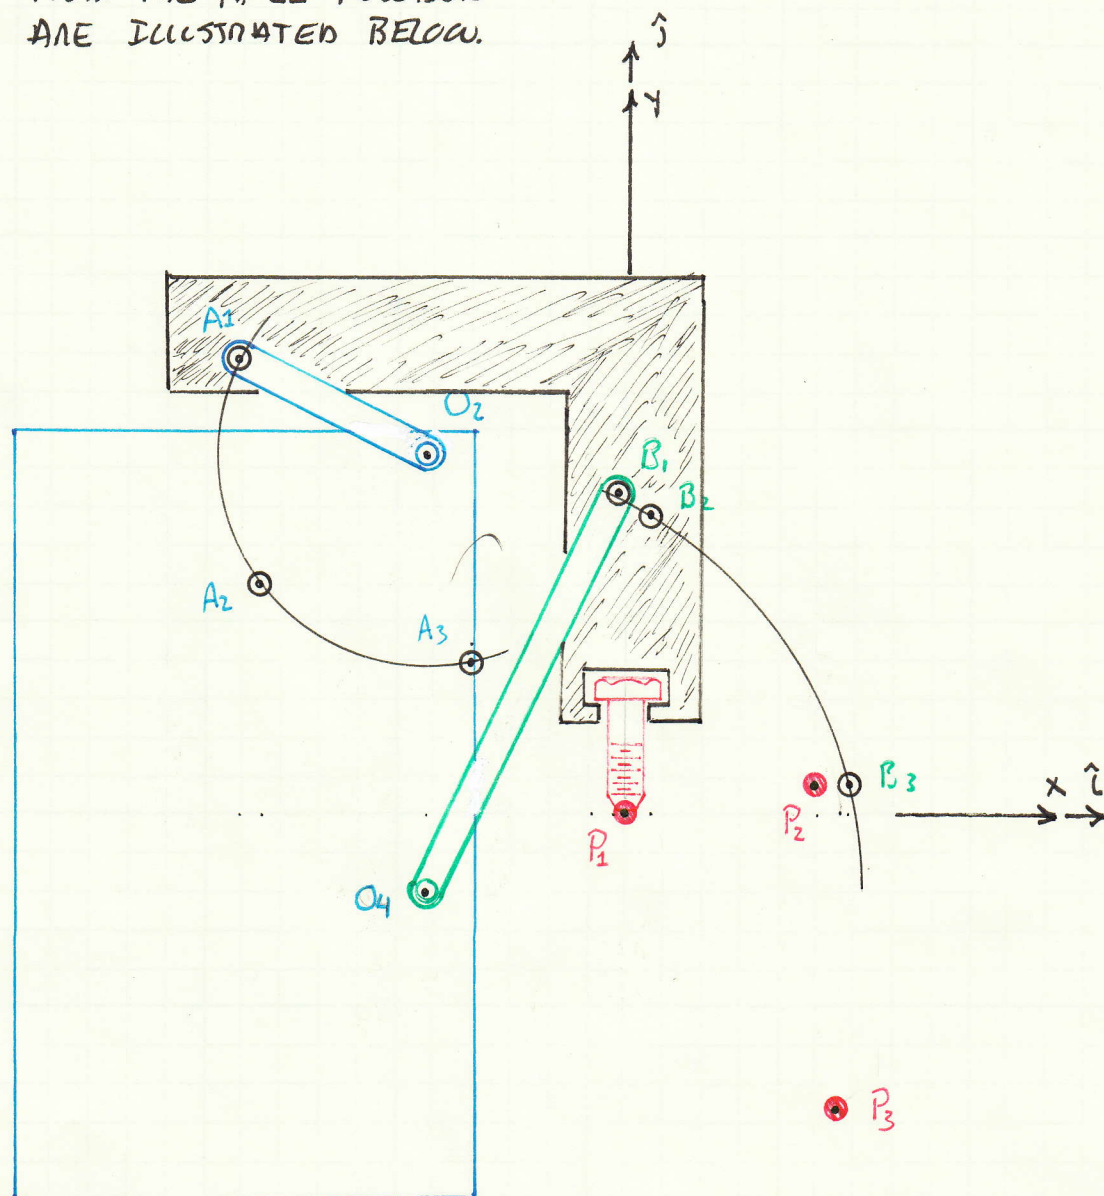 ARE ILLUSTRATED BELOW.
ĵ
y
A1
O2
B1
B2
A2
A3
B3
x î
P2
P1
O4
P3